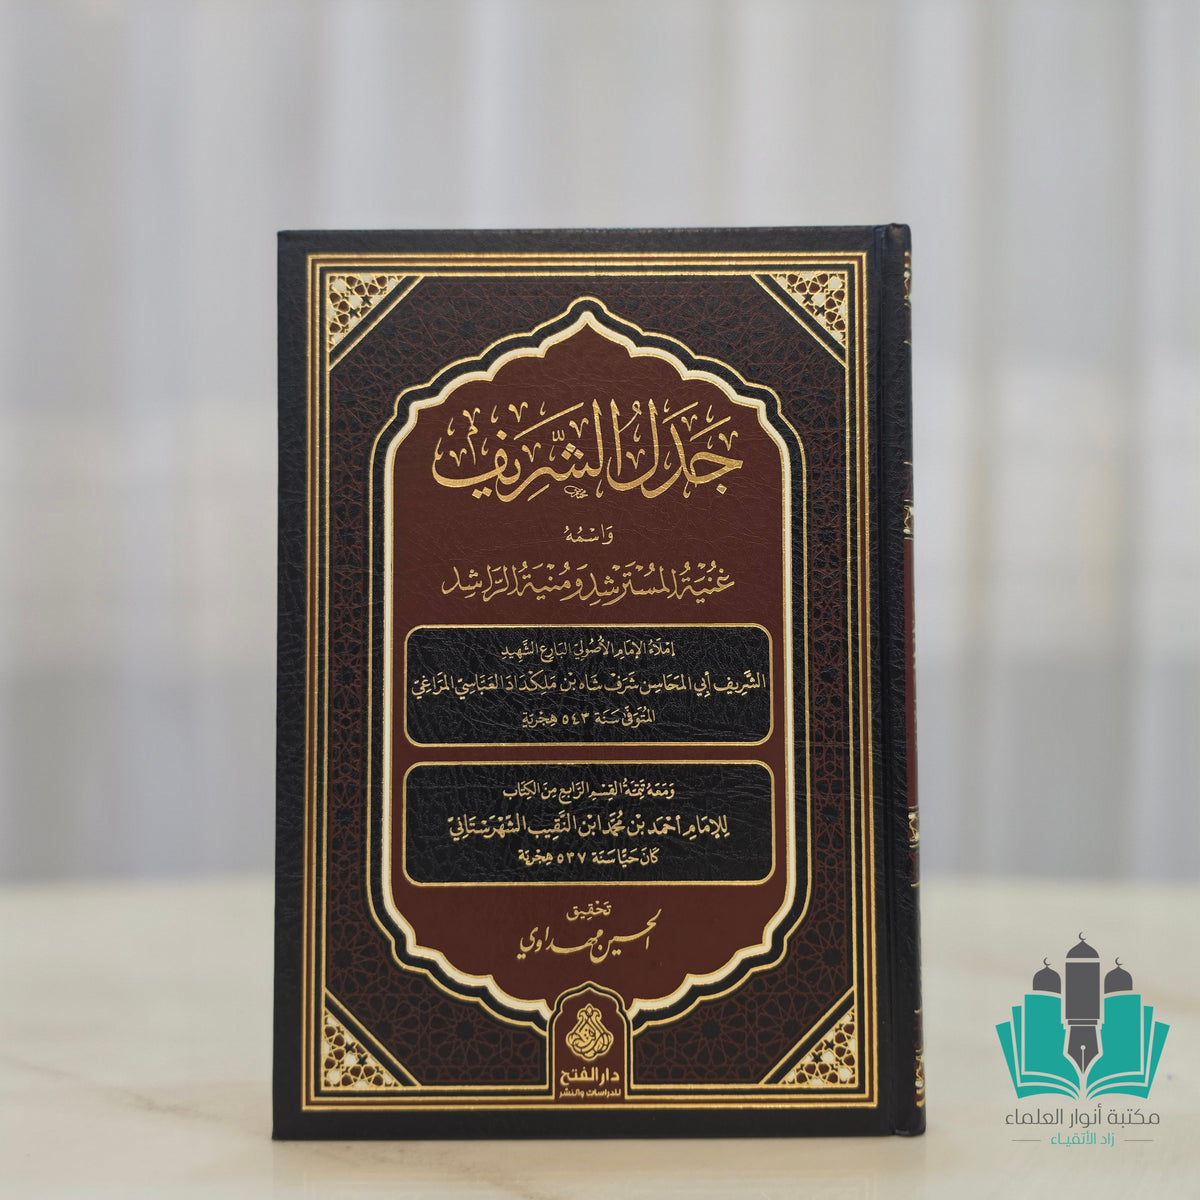 جَدَلُ الشَّرِيفِ
وَاسْمُهُ
غُنْيَةُ المُسْتَرْشِدِ وَمُنْيَةُ الرَّاشِدِ
إمْلَاءُ الإمَامِ الأُصُولِيِّ البَارِعِ الشَّهِيدِ
الشَّرِيفِ أَبِي المَحَاسِنِ شَرَفْ شَاه بْنِ مَلِكْدَادَ العَبَّاسِيِّ المَرَاغِيِّ
المُتَوَفَّى سَنَة ٥٤٣ هِجْرِيَّة
وَمَعَهُ تَتِمَّةُ القِسْمِ الرَّابِعِ مِنَ الكِتَابِ
لِلإِمَامِ أَحْمَد بْنِ مُحَمَّد ابْنِ النَّقِيبِ الشَّهْرَسْتَانِيِّ
كَانَ حَيًّا سَنَة ٥٣٧ هِجْرِيَّة
تَحْقِيق
الحسين مهداوي
دار الفتح
للدراسات والنشر
مكتبة أنوار العلماء
زاد الأتقياء